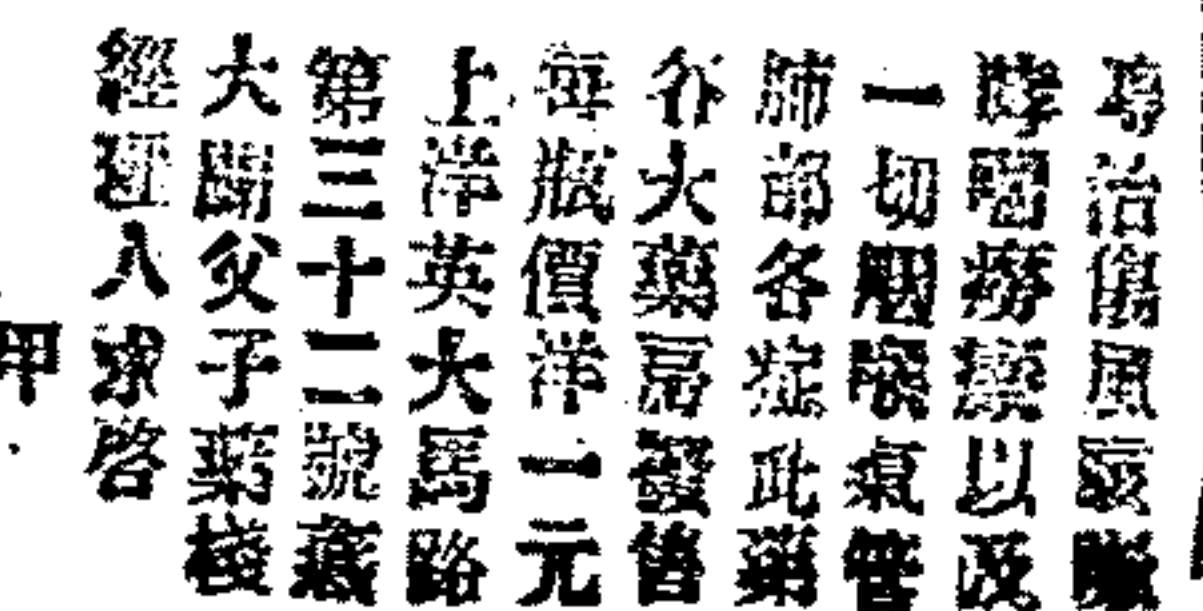 專治傷風咳嗽
哮咽癆瘵以及
一切咽喉氣管
肺部各症此藥
各大藥房發售
每瓶價洋一元
上洋英大馬路
第三十二號意
大開父子藥棧
經理人求啓
甲